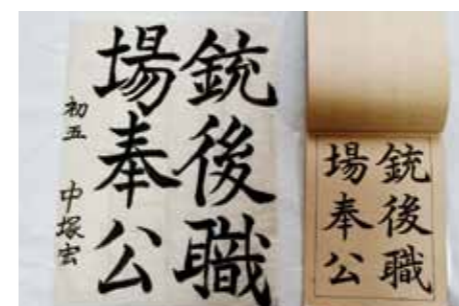 銃後職
場奉公
初五 中塚宏
銃後職
場奉公